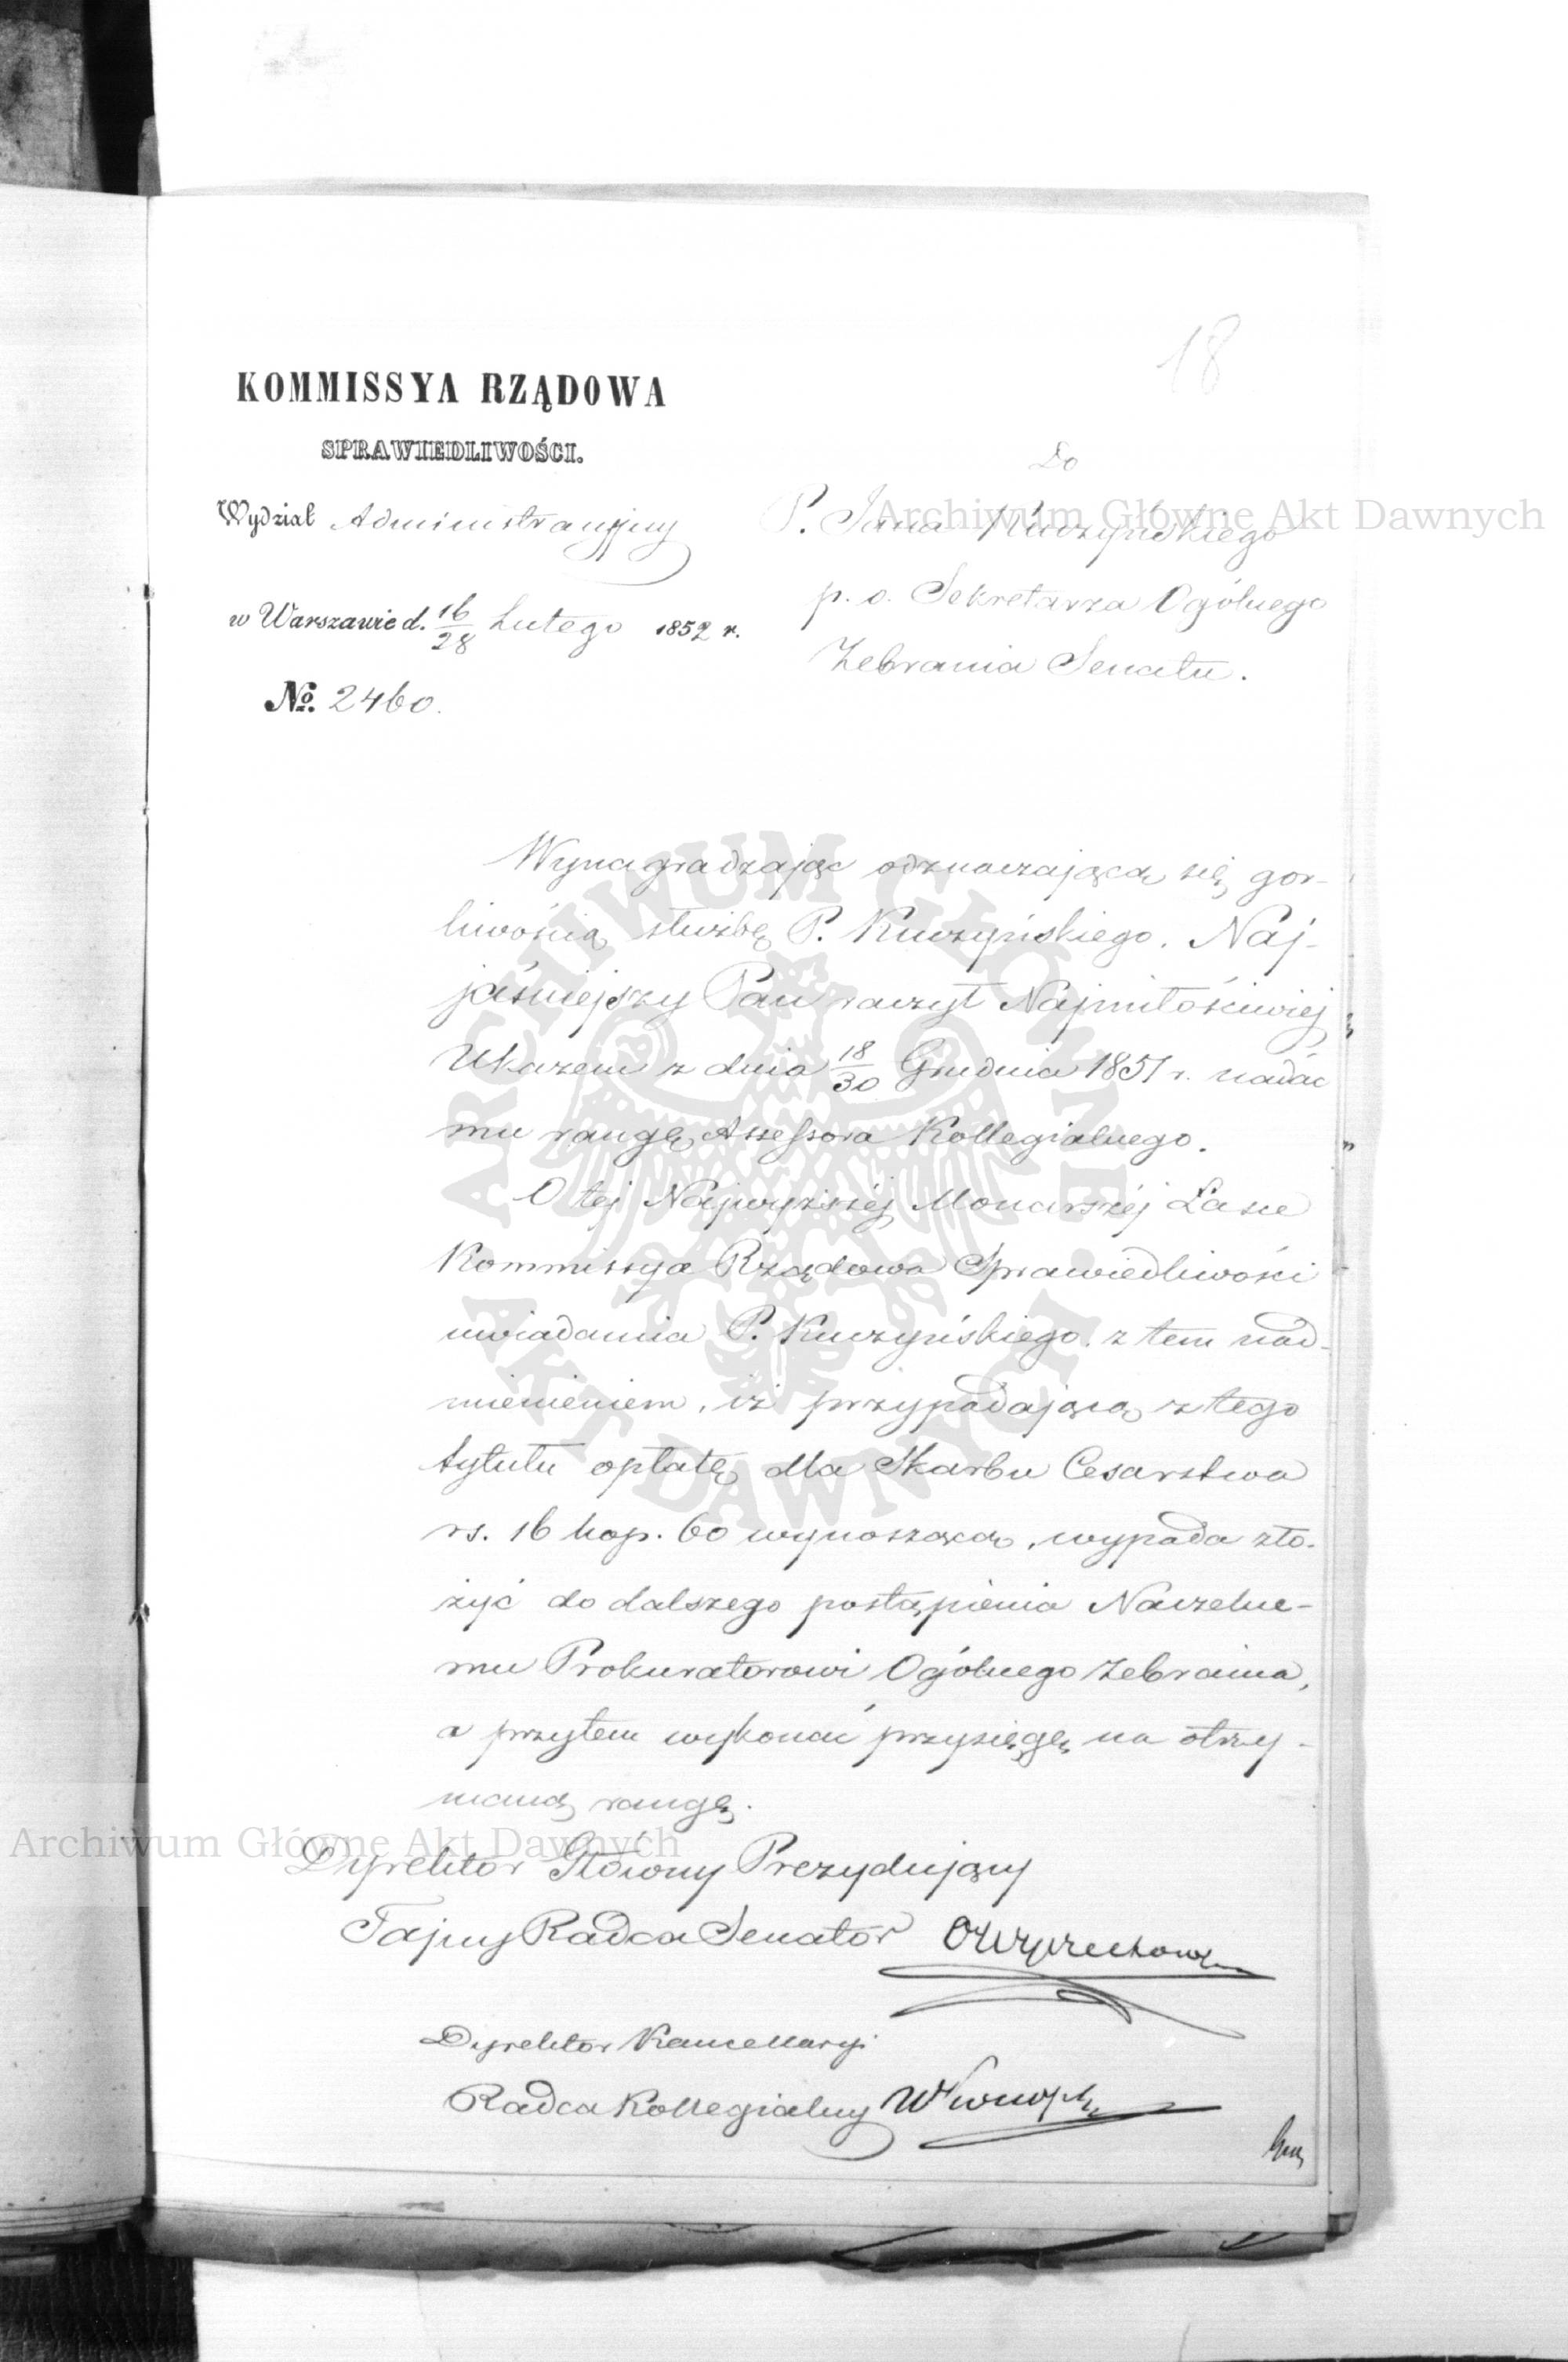 18
KOMMISSYA RZĄDOWA
SPRAWIEDLIWOŚCI.
Wydział Administracyjny
w Warszawie d. 16/28 Lutego 1852 r.
№ 2460.
Do
P. Jana Kuczyńskiego
p. o. Sekretarza Ogólnego
Zebrania Senatu.
Archiwum Główne Akt Dawnych
Wynagradzając odznaczającą się gor-
liwością służbę P. Kuczyńskiego. Naj-
jaśniejszy Pan raczył Najmiłościwiej
Ukazem z dnia 18/30 Grudnia 1851 r. nadać
mu rangę Assessora Kollegialnego.
O tej Najwyższej Monarszej Łasce
Kommissya Rządowa Sprawiedliwości
uwiadamia P. Kuczyńskiego. z tem nad-
mienieniem, iż przypadającą z tego
tytułu opłatę dla Skarbu Cesarstwa
rs. 16 kop. 60 wynoszącą, wypada zło-
żyć do dalszego postąpienia Naczelne-
mu Prokuratorowi Ogólnego Zebrania,
a przytem wykonać przysięgę na otrzy-
maną rangę.
Archiwum Główne Akt Dawnych
Dyrektor Główny Prezydujący
Tajny Radca Senator
Dyrektor Kancellaryi
Radca Kollegialny
ARCHIWUM GŁÓWNE AKT DAWNYCH